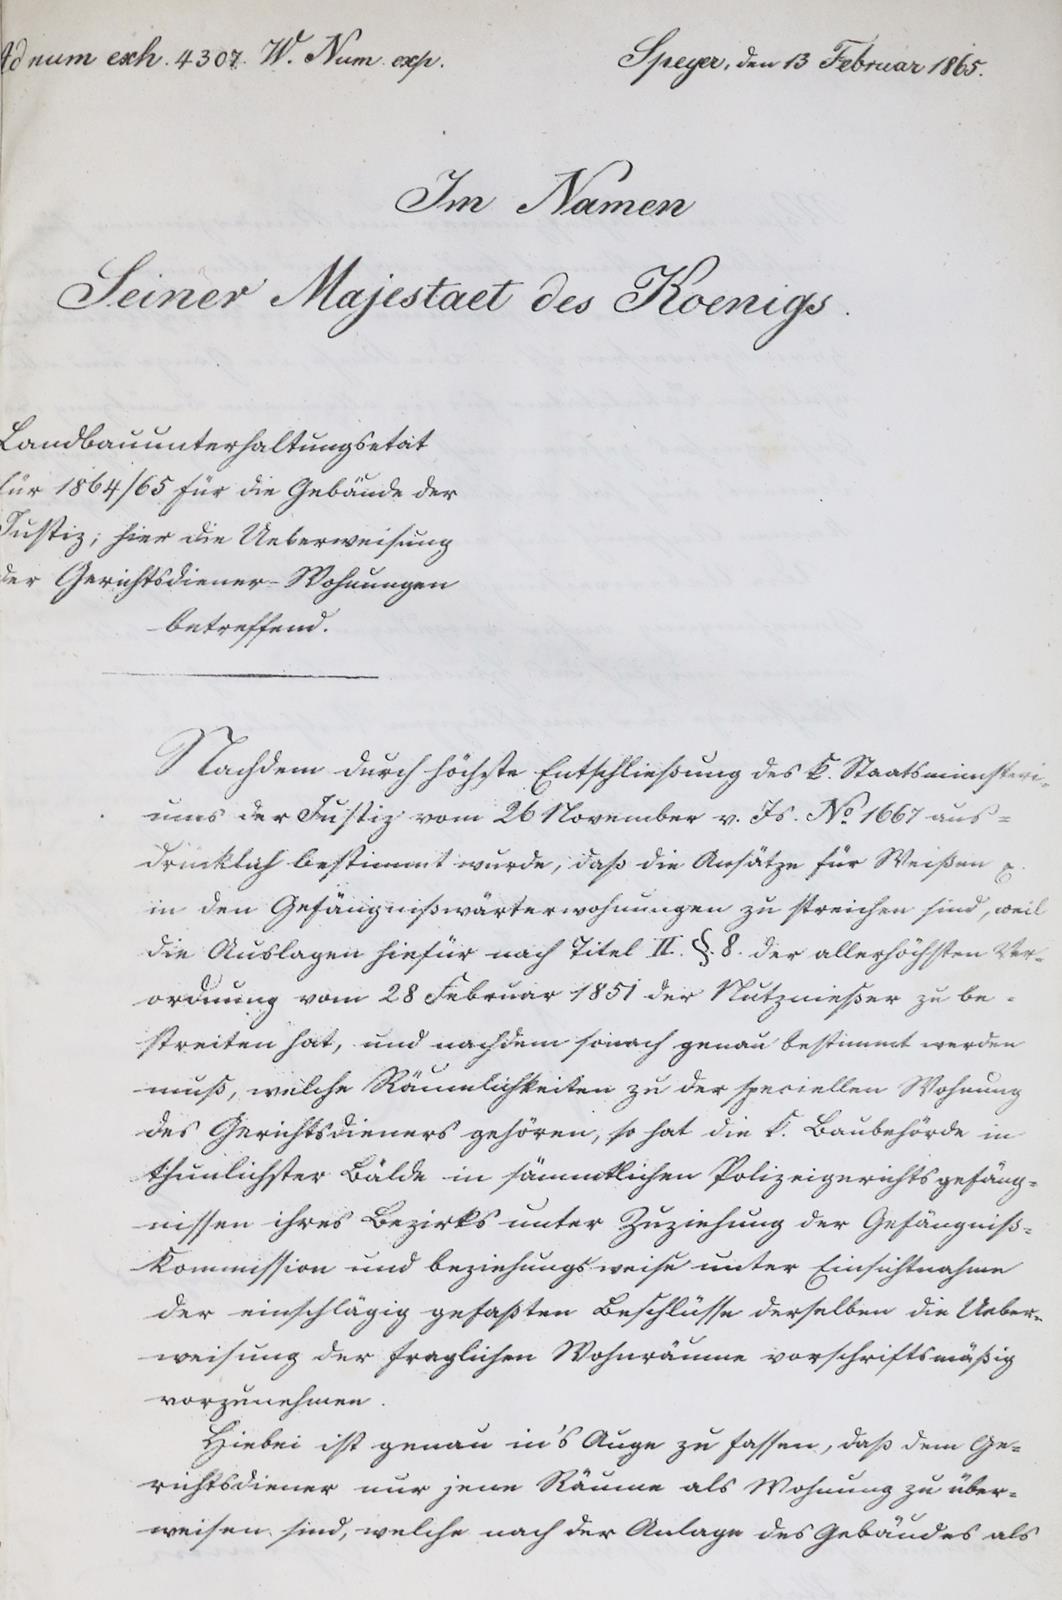 Ad num exh. 4307. W. Num. exp.
Speyer, den 13 Februar 1865.
Im Namen
Seiner Majestaet des Koenigs.
Landbauunterhaltungsetat
für 1864/65 für die Gebäude der
Justiz; hier die Ueberweisung
der Gerichtsdiener-Wohnungen
betreffend.
Nachdem durch höchste Entschließung des k. Staatsministeri-
ums der Justiz vom 26 November v. Js. No 1667 aus=
drücklich bestimmt wurde, daß die Ansätze für Weißen
in den Gefängnißwärterwohnungen zu streichen sind, weil
die Auslagen hiefür nach Titel II. §. 8. der allerhöchsten Ver-
ordnung vom 28 Februar 1851 der Nutznießer zu be=
streiten hat, und nachdem sonach genau bestimmt werden
muß, welche Räumlichkeiten zu der speciellen Wohnung
des Gerichtsdieners gehören, so hat die k. Baubehörde in
thunlichster Bälde in sämmtlichen Polizeigerichtsgefäng=
nissen ihres Bezirks unter Zuziehung der Gefängniß=
Kommission und beziehungsweise unter Einsichtnahme
der einschlägig gefaßten Beschlüsse derselben die Ueber=
weisung der fraglichen Wohnräume vorschriftsmäßig
vorzunehmen.
Hiebei ist genau in's Auge zu fassen, daß dem Ge=
richtsdiener nur jene Räume als Wohnung zu über=
weisen sind, welche nach der Anlage des Gebäudes als